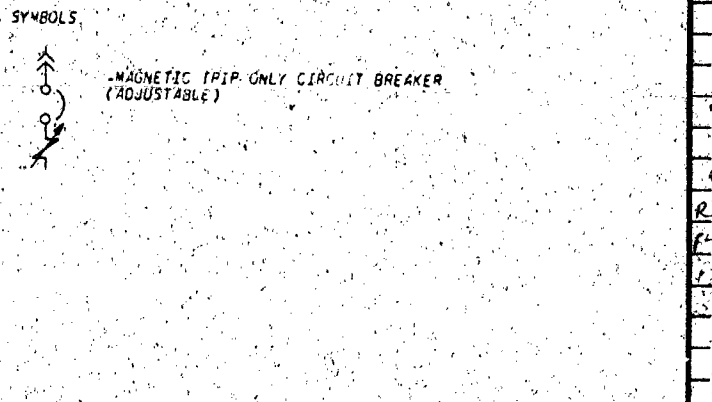 SYMBOLS
-MAGNETIC TRIP ONLY CIRCUIT BREAKER
(ADJUSTABLE)
R